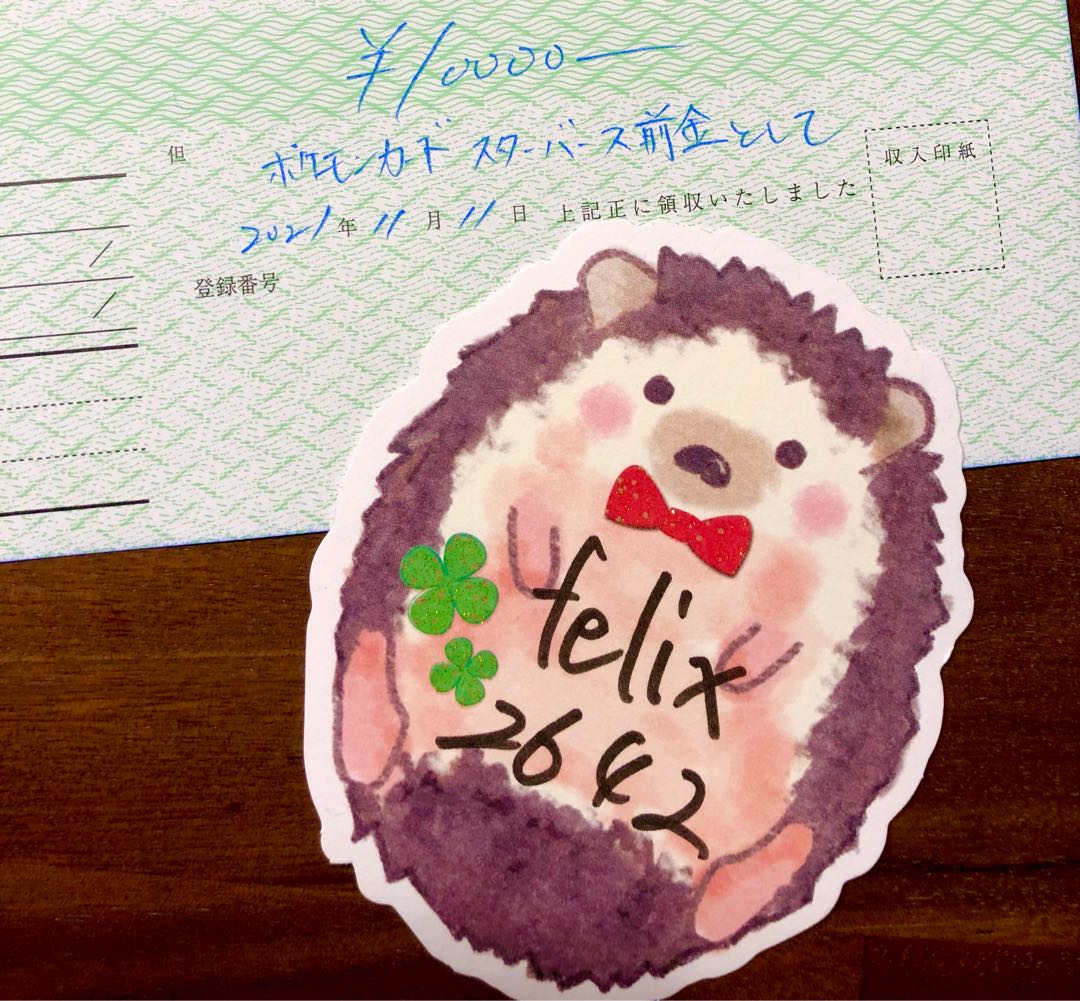 ¥10000—
但 ポケモンカード スターバース前金として
収入印紙
2021年11月11日 上記正に領収いたしました
登録番号
felix
2642